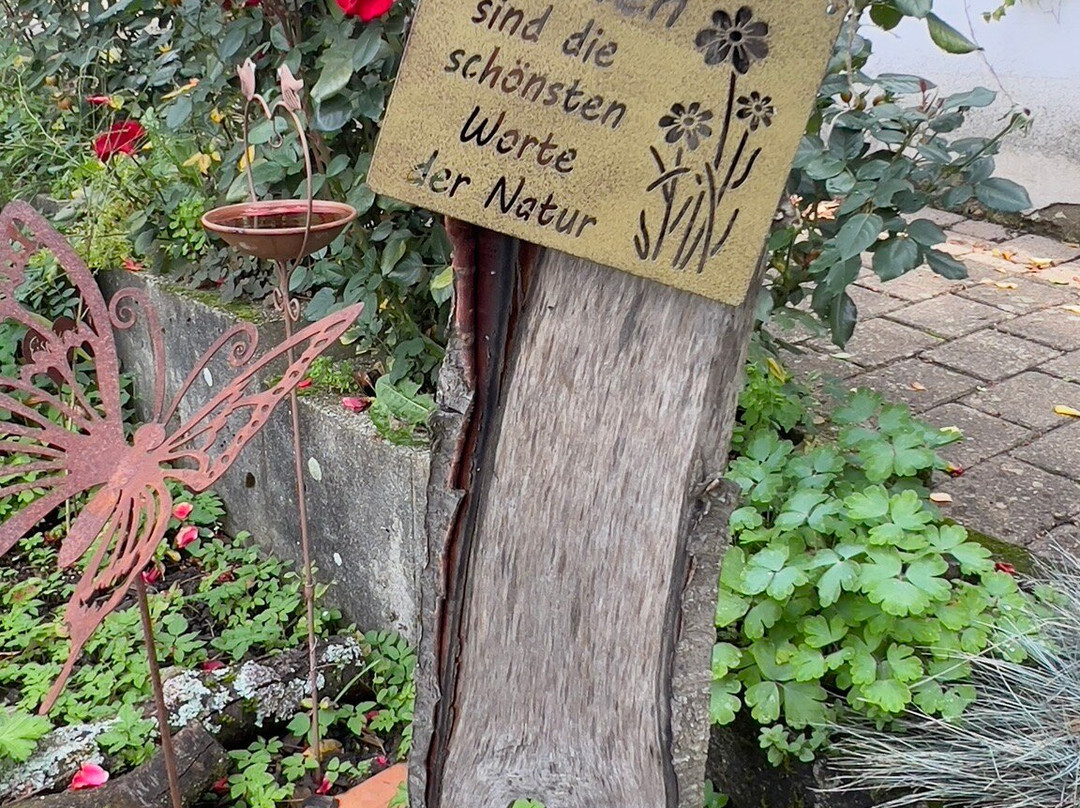 sind die
schönsten
Worte
der Natur